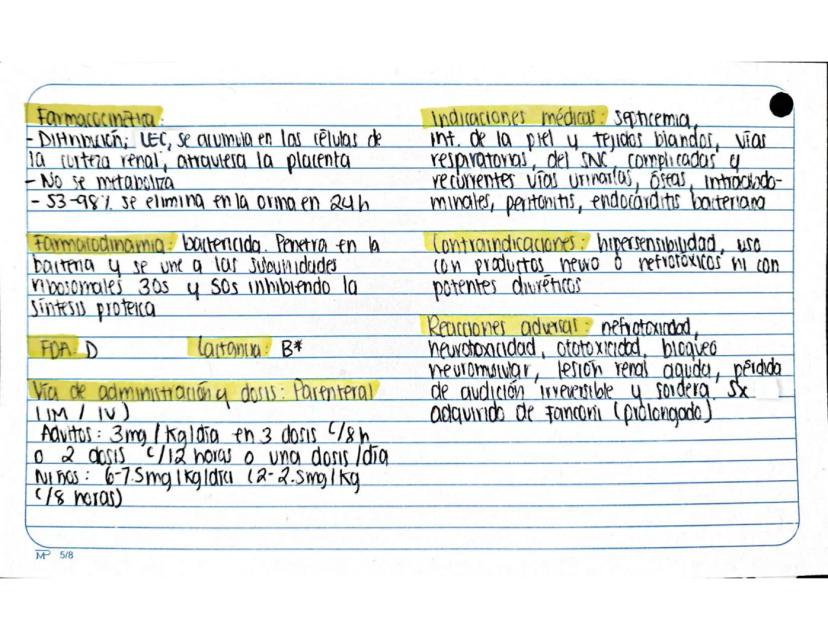 Farmacocinética:
- Distribución: LEC, se acumula en las células de
la corteza renal, atraviesa la placenta
- No se metaboliza
- 53-98% se elimina en la orina en 24h
Farmacodinamia: bactericida. Penetra en la
bacteria y se une a las subunidades
ribosomales 30s y 50s inhibiendo la
síntesis proteica
FDA: D
Lactancia: B*
Vía de administración y dosis: Parenteral
(IM / IV)
Adultos: 3mg/kg/día en 3 dosis c/8h
o 2 dosis c/12 horas o una dosis/día
Niños: 6-7.5mg/kg/día (2-2.5mg/kg
c/8 horas)
Indicaciones médicas: septicemia,
inf. de la piel y tejidos blandos, vías
respiratorias, del SNC, complicadas y
recurrentes vías urinarias, óseas, intraabdo-
minales, peritonitis, endocarditis bacteriana
Contraindicaciones: hipersensibilidad, uso
con productos neuro o nefrotóxicos ni con
potentes diuréticos
Reacciones adversas: nefrotoxicidad,
neurotoxicidad, ototoxicidad, bloqueo
neuromuscular, lesión renal aguda, pérdida
de audición irreversible y sordera. Sx
adquirido de Fanconi (prolongado)
MP 5/8